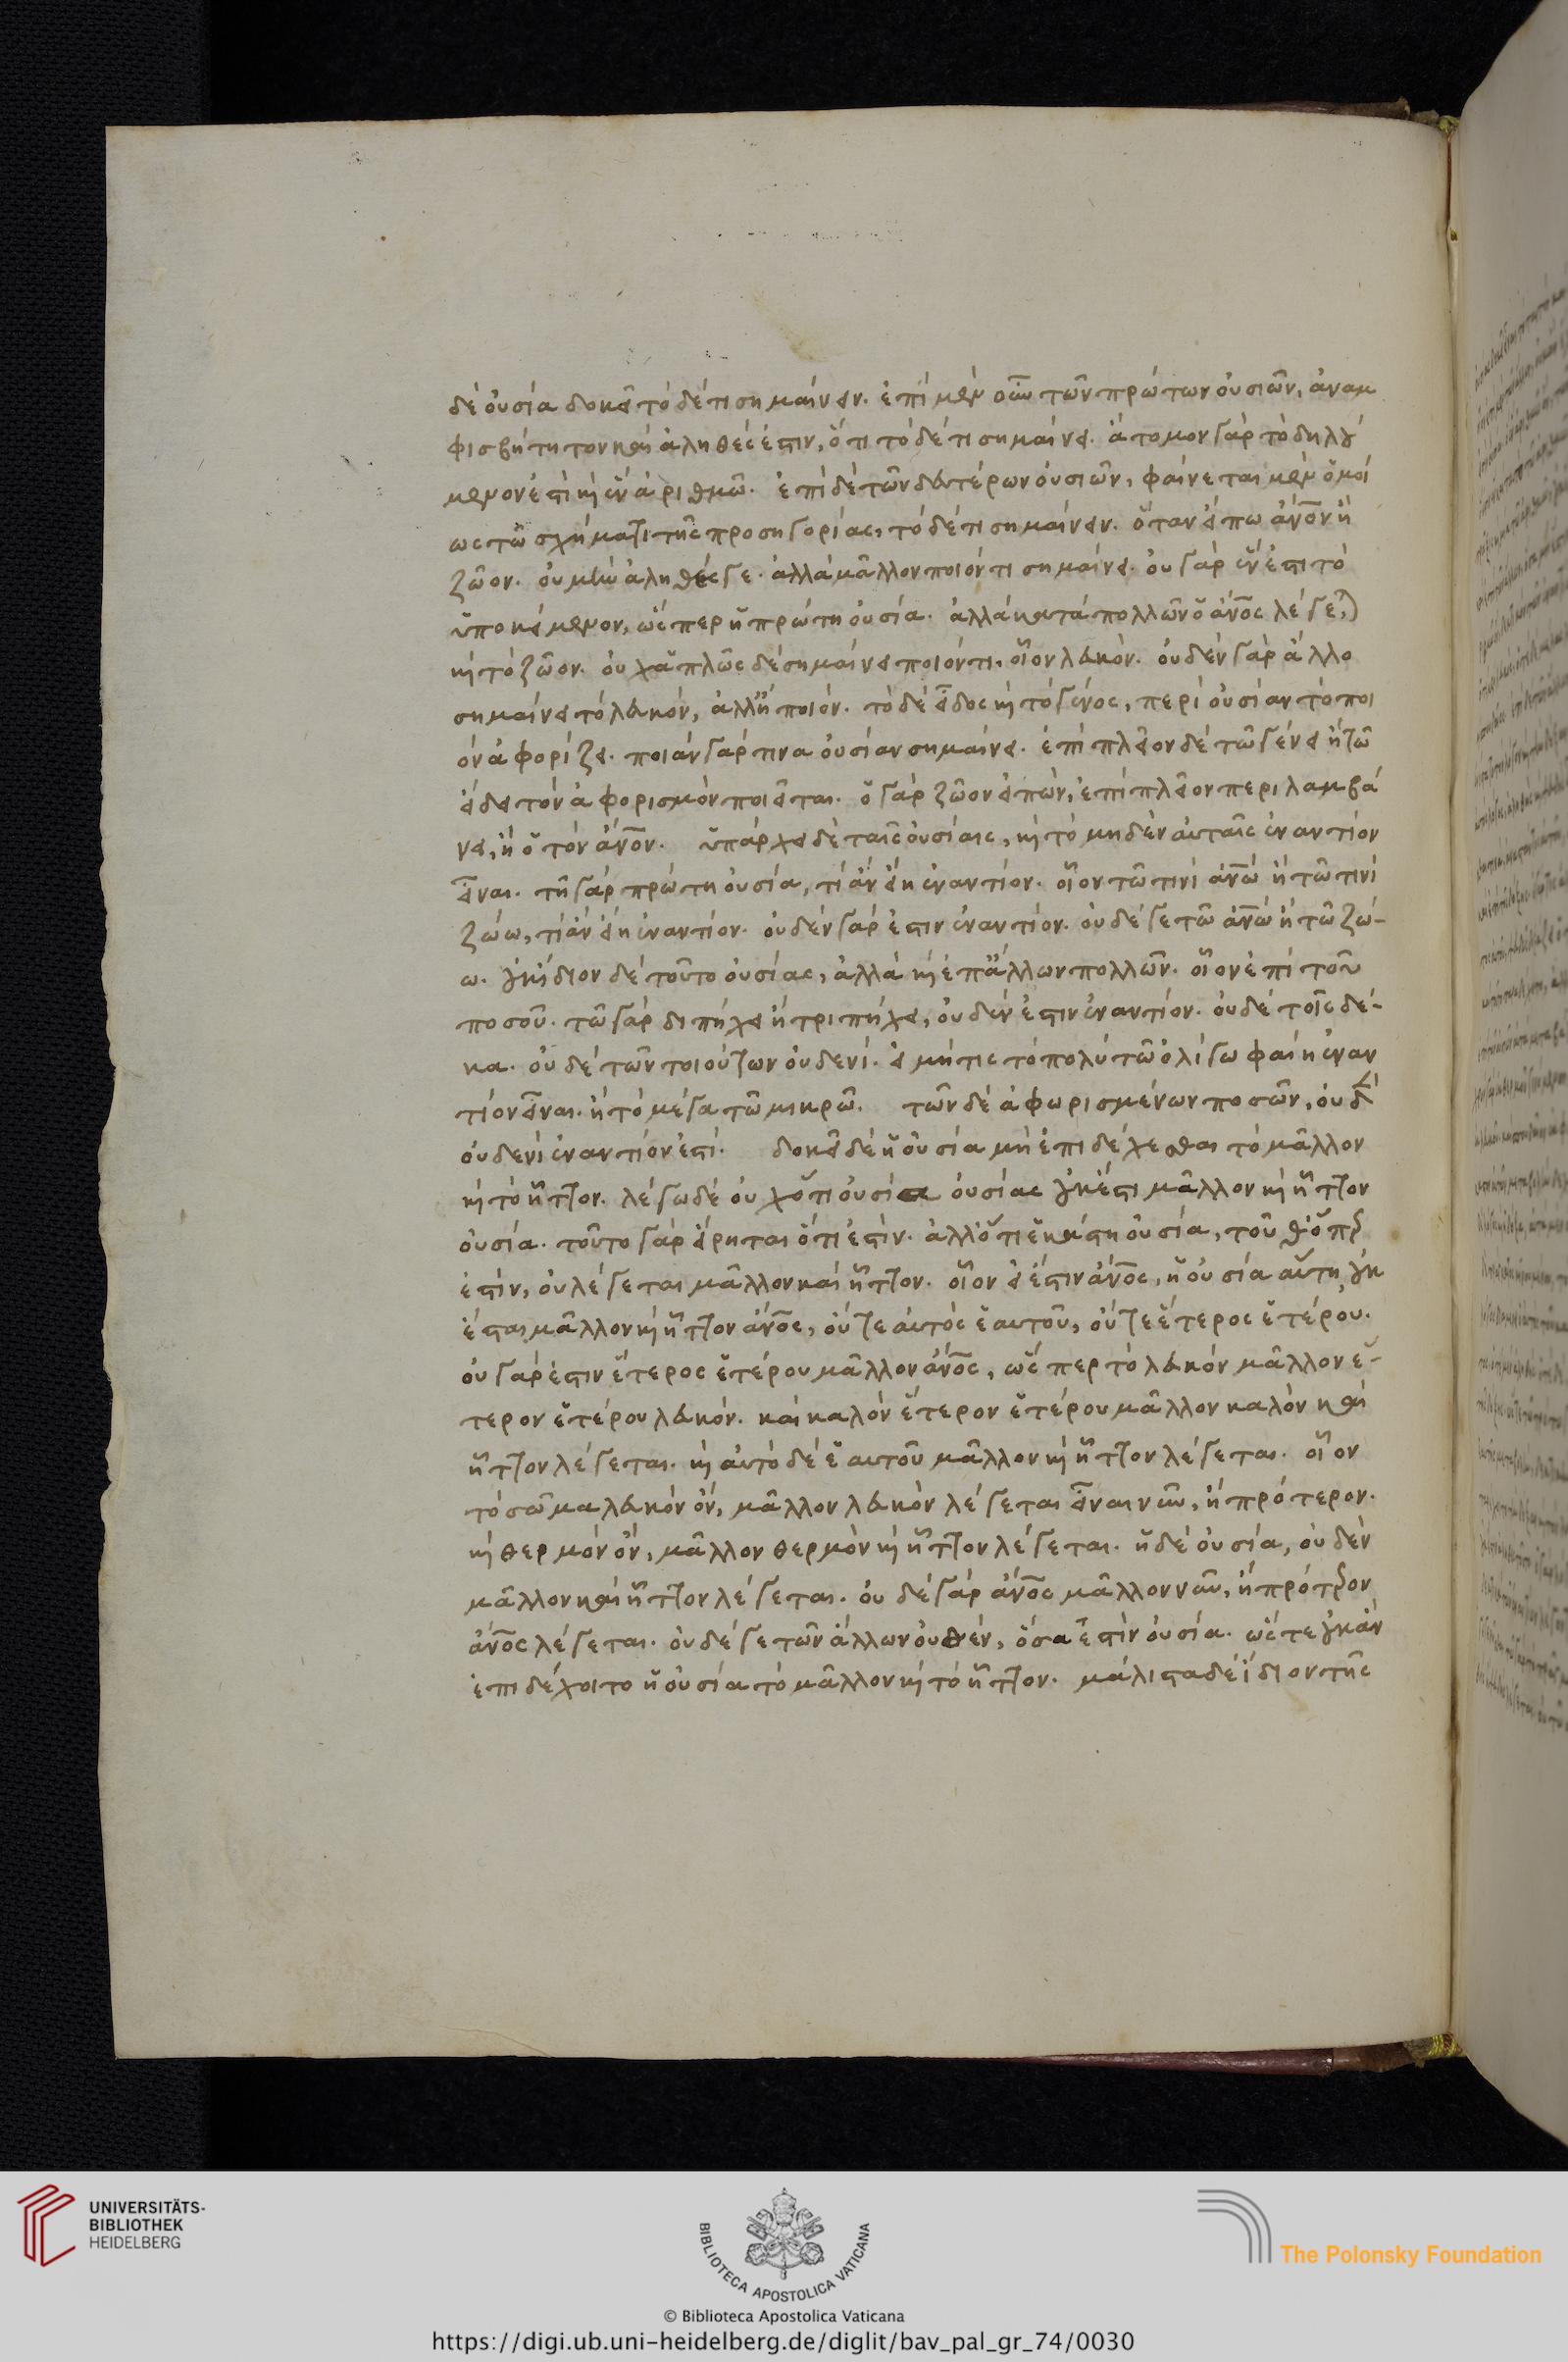 δὲ οὐσία δοκεῖ τόδέ τι σημαίνειν. ἐπὶ μὲν οὖν τῶν πρώτων οὐσιῶν, ἀναμ
φισβήτητον καὶ ἀληθές ἐστιν, ὅτι τόδέ τι σημαίνει. ἄτομον γὰρ τὸ δηλού
μενον ἐστὶ καὶ ἓν ἀριθμῶ. ἐπὶ δὲ τῶν δευτέρων οὐσιῶν, φαίνεται μὲν ὁμοί
ως τῶ σχήματι τῆς προσηγορίας, τόδέ τι σημαίνειν. ὅταν εἴπω ἄνον ἢ
ζῶον. οὐ μὴν ἀληθές γε. ἀλλὰ μᾶλλον ποιόν τι σημαίνει. οὐ γὰρ ἕν ἐστι τὸ
ὑποκείμενον, ὥσπερ ἡ πρώτη οὐσία. ἀλλὰ κατὰ πολλῶν ὁ ἄνος λέγεται
καὶ τὸ ζῶον. οὐχ ἁπλῶς δὲ σημαίνει ποιόν τι, οἷον λευκόν. οὐδὲν γὰρ ἄλλο
σημαίνει τὸ λευκόν, ἀλλ' ἢ ποιόν. τὸ δὲ εἶδος καὶ τὸ γένος, περὶ οὐσίαν τὸ ποι
όν ἀφορίζει. ποιὰν γάρ τινα οὐσίαν σημαίνει. ἐπὶ πλεῖον δὲ τῶ γένει ἢ τῶ
εἴδει τὸν ἀφορισμὸν ποιεῖται. ὁ γὰρ ζῶον εἰπὼν, ἐπὶ πλεῖον περιλαμβά
νει, ἢ ὁ τὸν ἄνον. ὑπάρχει δὲ ταῖς οὐσίαις, καὶ τὸ μηδὲν αὐταῖς ἐναντίον
εἶναι. τῆ γὰρ πρώτη οὐσία, τί ἂν εἴη ἐναντίον. οἷον τῶ τινὶ ἀνω ἢ τῶ τινὶ
ζώω, τί ἂν εἴη ἐναντίον. οὐδὲν γάρ ἐστιν ἐναντίον. οὐδέ γε τῶ ἀνω ἢ τῶ ζώ-
ω. οὐκ ἴδιον δὲ τοῦτο οὐσίας, ἀλλὰ καὶ ἐπ' ἄλλων πολλῶν. οἷον ἐπὶ τοῦ
ποσοῦ. τῶ γὰρ διπήχει ἢ τριπήχει, οὐδέν ἐστιν ἐναντίον. οὐδὲ τοῖς δέ-
κα. οὐδὲ τῶν τοιούτων οὐδενί. εἰ μή τις τὸ πολὺ τῶ ὀλίγω φαίη ἐναν
τίον εἶναι. ἢ τὸ μέγα τῶ μικρῶ. τῶν δὲ ἀφωρισμένων ποσῶν, οὐδὲν
οὐδενὶ ἐναντίον ἐστί. δοκεῖ δὲ ἡ οὐσία μὴ ἐπιδέχεσθαι τὸ μᾶλλον
καὶ τὸ ἧττον. λέγω δὲ οὐχ ὅτι οὐσία οὐσίας οὐκ ἔστι μᾶλλον καὶ ἧττον
οὐσία. τοῦτο γὰρ εἴρηται ὅτι ἐστίν. ἀλλ' ὅτι ἑκάστη οὐσία, τοῦθ' ὅπερ
ἐστίν, οὐ λέγεται μᾶλλον καὶ ἧττον. οἷον εἰ ἔστιν ἄνος, ἡ οὐσία αὕτη οὐκ
ἔσται μᾶλλον καὶ ἧττον ἄνος, οὔτε αὐτὸς ἑαυτοῦ, οὔτε ἕτερος ἑτέρου.
οὐ γάρ ἐστιν ἕτερος ἑτέρου μᾶλλον ἄνος, ὥσπερ τὸ λευκόν μᾶλλον ἕ-
τερον ἑτέρου λευκόν. καὶ καλὸν ἕτερον ἑτέρου μᾶλλον καλὸν καὶ
ἧττον λέγεται. καὶ αὐτὸ δὲ ἑαυτοῦ μᾶλλον καὶ ἧττον λέγεται. οἷον
τὸ σῶμα λευκόν ὄν, μᾶλλον λευκὸν λέγεται εἶναι νῦν, ἢ πρότερον.
καὶ θερμόν ὄν, μᾶλλον θερμὸν καὶ ἧττον λέγεται. ἡ δὲ οὐσία, οὐδὲν
μᾶλλον καὶ ἧττον λέγεται. οὐδὲ γὰρ ἄνος μᾶλλον νῦν, ἢ πρότερον
ἄνος λέγεται. οὐδέ γε τῶν ἄλλων οὐθέν, ὅσα ἐστὶν οὐσία. ὥστε οὐκ ἂν
ἐπιδέχοιτο ἡ οὐσία τὸ μᾶλλον καὶ τὸ ἧττον. μάλιστα δὲ ἴδιον τῆς
UNIVERSITÄTS-
BIBLIOTHEK
HEIDELBERG
BIBLIOTECA APOSTOLICA VATICANA
The Polonsky Foundation
© Biblioteca Apostolica Vaticana
https://digi.ub.uni-heidelberg.de/diglit/bav_pal_gr_74/0030